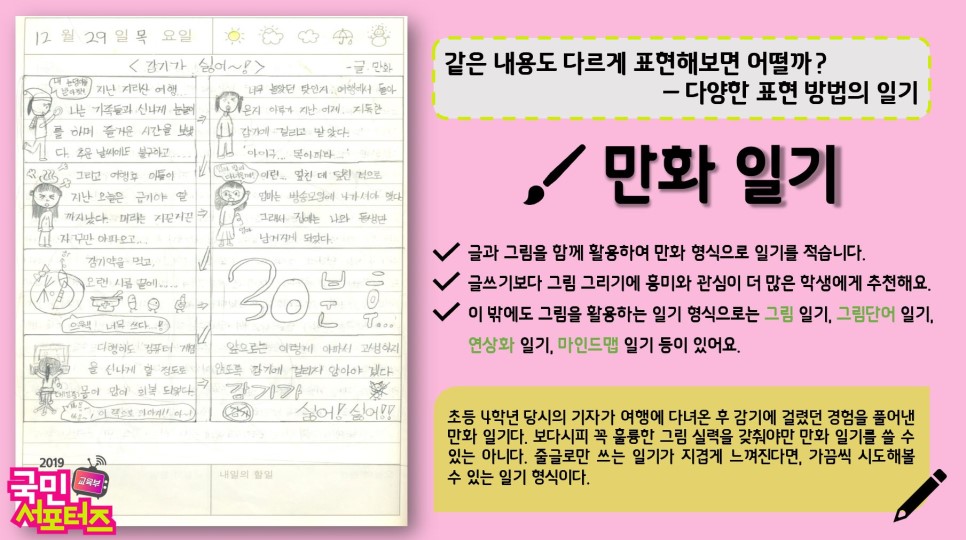 12 월 29 일 목 요일
< 감기가 싫어~! >
- 글. 만화
지난 지리산 여행..
나는 가족들과 신나게 눈놀이
를 하며 즐거운 시간을 보냈
다. 추운 날씨에도 불구하고....
너무 놀았던 탓인지, 여행에서 돌아
온지 이틀째
감기에 걸리고 말았다.
"아이구...
그리고 여행후 이틀이
지난 오늘은 급기야 열
까지났다. 머리는 지끈지끈
자꾸만 아파오고...
이런 데 덮친 격으로
엄마는 방송모임에 나가셔야 했다
그래서 집에는 나와 동생만
남겨지게 되었다.
감기약을 먹고,
오랜 시름 끝에....
너무 쓰다..!!
30분 후...
다행히도 컴퓨터 게임
을 신나게 할 정도로
몸이 많이 회복 되었다.
앞으로는 이렇게 아파서 고생하지
않도록 감기에 걸리지 않아야 겠다
감기가
싫어! 싫어!!
2019
내일의 할일
국민
교육부
서포터즈
같은 내용도 다르게 표현해보면 어떨까?
– 다양한 표현 방법의 일기
만화 일기
글과 그림을 함께 활용하여 만화 형식으로 일기를 적습니다.
글쓰기보다 그림 그리기에 흥미와 관심이 더 많은 학생에게 추천해요.
이 밖에도 그림을 활용하는 일기 형식으로는 그림 일기, 그림단어 일기,
연상화 일기, 마인드맵 일기 등이 있어요.
초등 4학년 당시의 기자가 여행에 다녀온 후 감기에 걸렸던 경험을 풀어낸
만화 일기다. 보다시피 꼭 훌륭한 그림 실력을 갖춰야만 만화 일기를 쓸 수
있는 아니다. 줄글로만 쓰는 일기가 지겹게 느껴진다면, 가끔씩 시도해볼
수 있는 일기 형식이다.